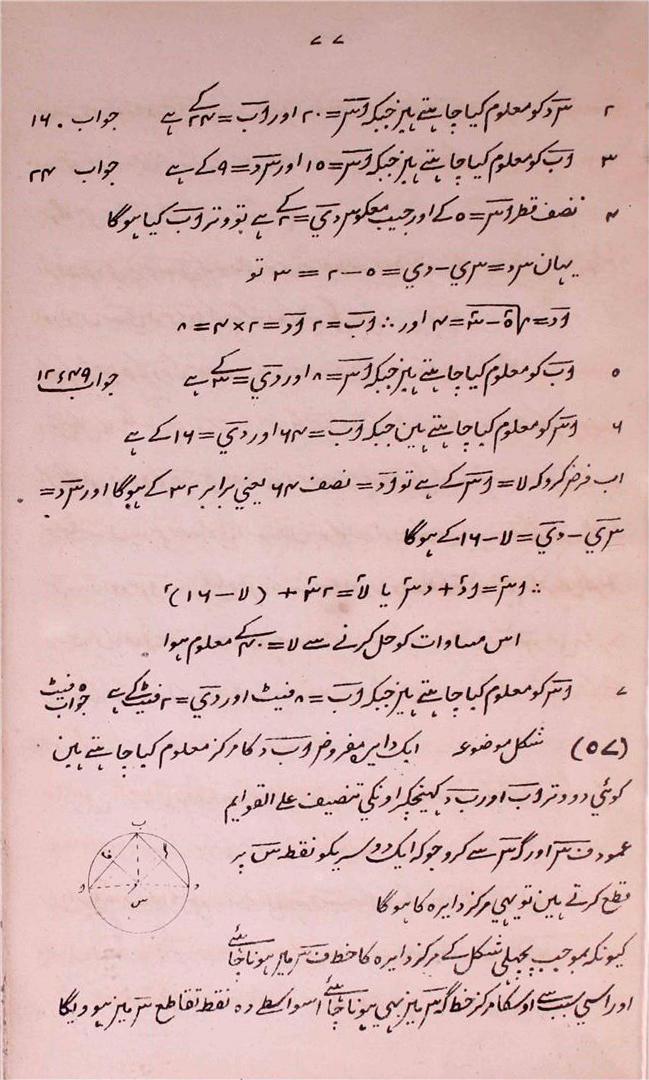 ۷۷
۲ س د کو معلوم کیا چاہتے ہین جبکہ ا س = ۲۰ اور ا ب = ۲۴ کے ہے جواب ۱۶.
۳ ا ب کو معلوم کیا چاہتے ہین جبکہ ا س = ۱۵ اور س د = ۹ کے ہے جواب ۲۴
۴ نصف قطر ا س = ۵ کے اور جیب معکوس د ي = ۲ کے ہے تو وتر ا ب کیا ہوگا
یہان س د = س ي - د ي = ۵ - ۲ = ۳ تو
ا د = = ۴ اور ∴ ا ب = ۲ ا د = ۲ × ۴ = ۸
۵ ا ب کو معلوم کیا چاہتے ہین جبکہ ا س = ۸ اور د ي = ۳ کے ہے جواب ۱۲٤۴۹
۶ ا س کو معلوم کیا چاہتے ہین جبکہ ا ب = ۶۴ اور د ي = ۱۶ کے ہے
اب فرض کرو کہ لا = ا س کے ہے تو ا د = نصف ۶۴ یعني برابر ۳۲ کے ہوگا اور س د =
س ي - د ي = لا - ۱۶ کے ہوگا
∴ ا س² = ا د² + د س² یا لا² = ۳۲² + (لا - ۱۶)²
اس مساوات کو حل کرنے سے لا = ۴۰ کے معلوم ہوا
۷ ا س کو معلوم کیا چاہتے ہین جبکہ ا ب = ۸ فیٹ اور د ي = ۲ فیٹ کے ہے جواب ۵ فیٹ
(۵۷) شکل موضوعہ ایک دایرہ مفروض ا ب د کا مرکز معلوم کیا چاہتے ہین
کوئي دو وتر ا ب اور ب د کہینچکر اونکي تنصیف علے القوایم
عمود ف س اور گ س سے کرو جو کہ ایک دوسریکو نقطہ س پر
قطع کرتے ہین تو یہي مرکز دایرہ کا ہوگا
کیونکہ بموجب پچہلي شکل کے مرکز دایرہ کا خط ف س مین ہونا چاہئے
اور اسي سبب سے اوسکا مرکز خط گ س مین بہي ہونا چاہئے اسواسطے وہ نقطہ تقاطع س مین ہوویگا
ب
ف
گ
ا
د
س